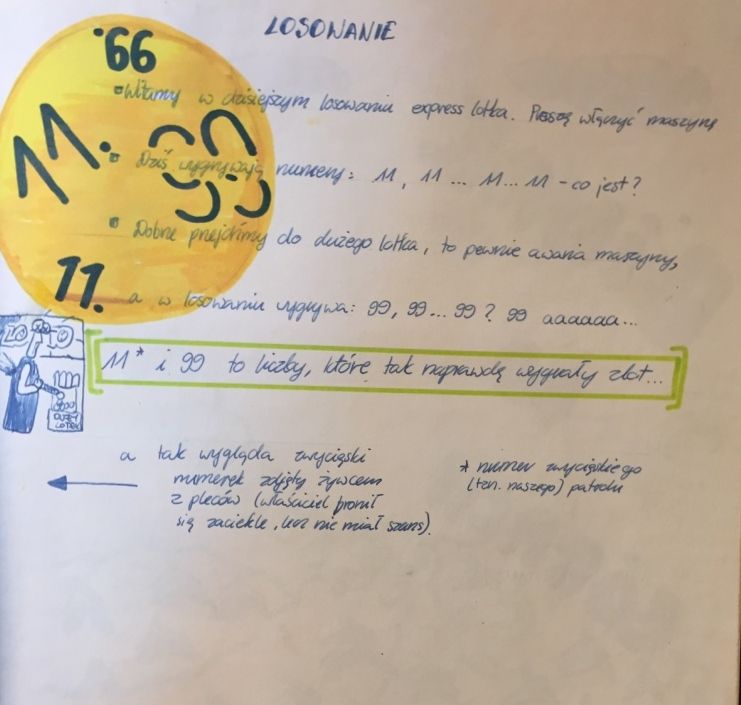 LOSOWANIE
'66
- Witamy w dzisiejszym losowaniu express lotka. Proszę włączyć maszynę
11.
- Dziś wygrywają numery: 11, 11 ... 11... 11 - co jest?
- Dobrze przejdźmy do dużego lotka, to pewnie awaria maszyny,
11. a w losowaniu wygrywa: 99, 99 ... 99? 99 aaaaaa...
LOTTO
DUŻY
LOTEK
11* i 99 to liczby, które tak naprawdę wygrały zlot...
a tak wygląda zwycięski
numerek zdjęty żywcem
z pleców (właściciel bronił
się zaciekle, lecz nie miał szans).
* numer zwycięskiego
(tzn. naszego) patrolu